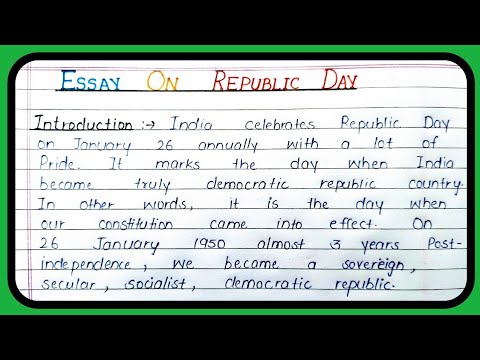 ESSAY ON REPUBLIC DAY
Introduction :→ India celebrates Republic Day
on January 26 annually with a lot of
Pride. It marks the day when India
became truly democratic republic country.
In other words, it is the day when
our constitution came into effect. On
26 January 1950 almost 3 years Post-
independence, we became a sovereign,
secular, socialist, democratic republic.